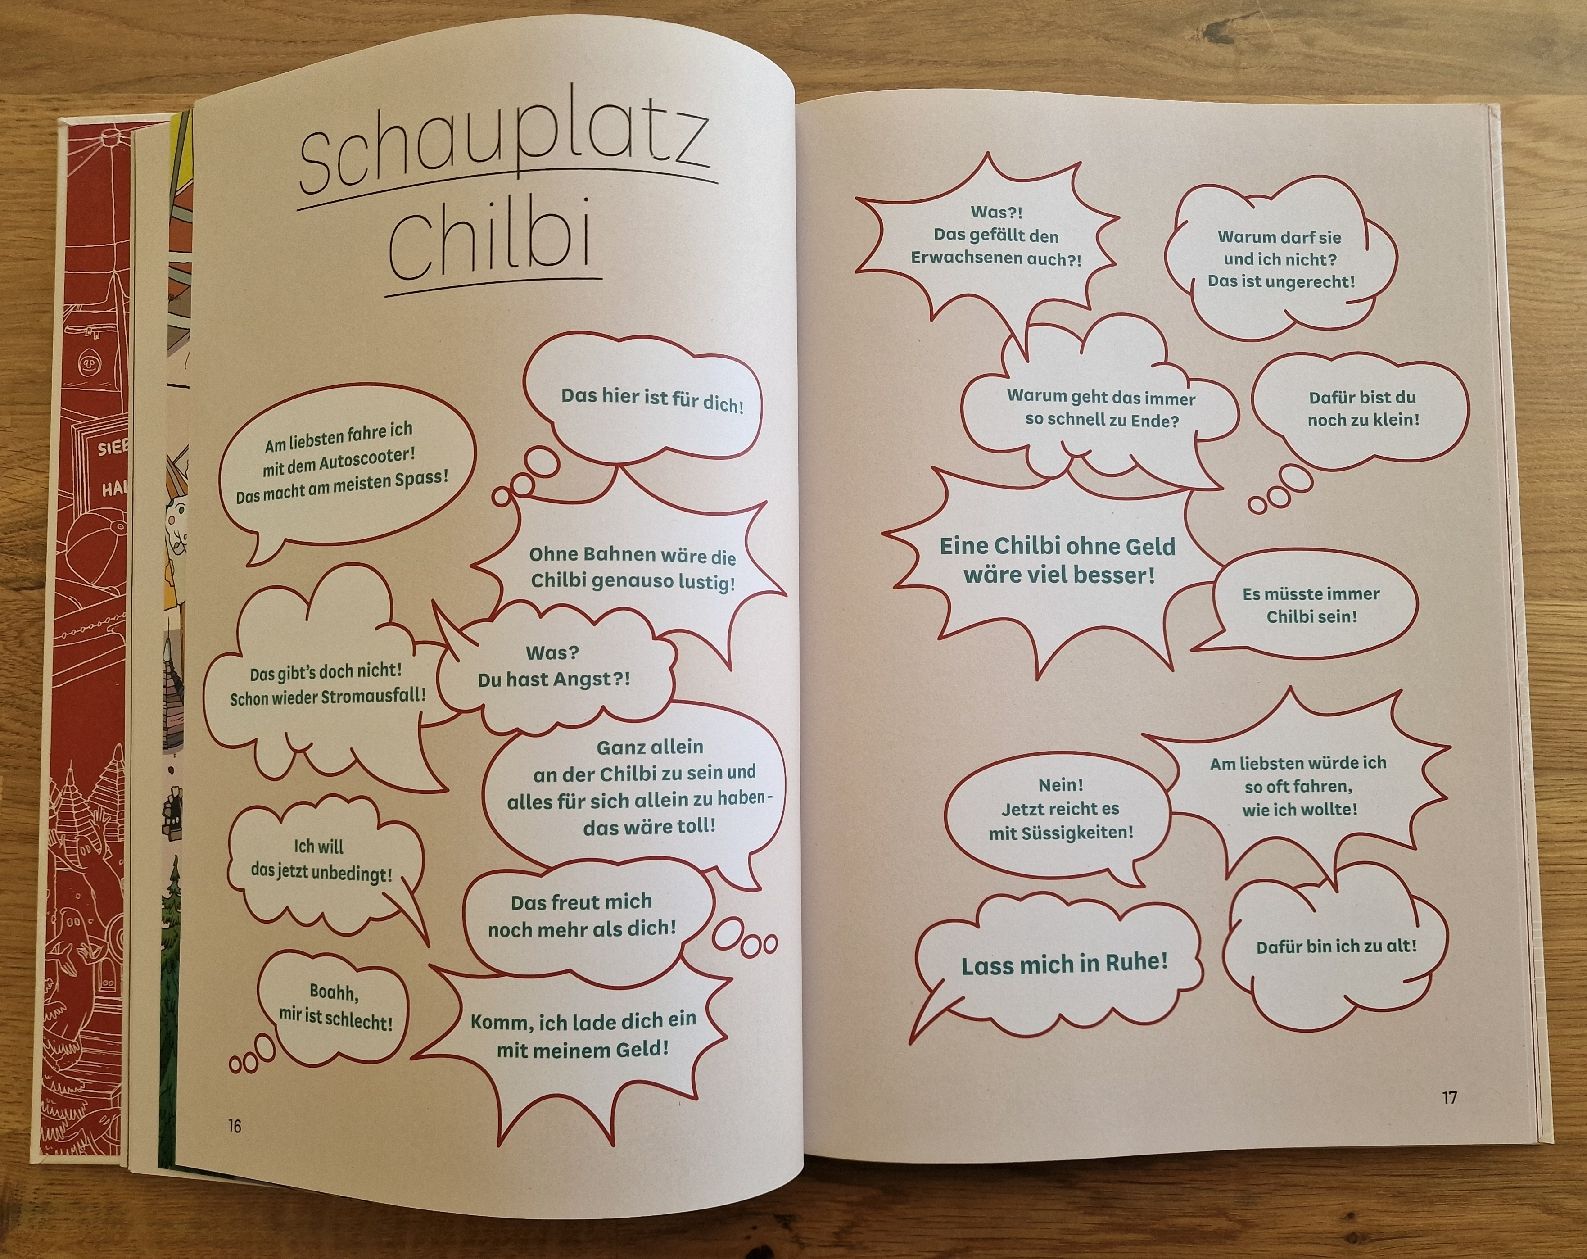 Schauplatz
Chilbi
Das hier ist für dich!
Am liebsten fahre ich
mit dem Autoscooter!
Das macht am meisten Spass!
Ohne Bahnen wäre die
Chilbi genauso lustig!
Was?
Du hast Angst?!
Das gibt's doch nicht!
Schon wieder Stromausfall!
Ganz allein
an der Chilbi zu sein und
alles für sich allein zu haben-
das wäre toll!
Ich will
das jetzt unbedingt!
Das freut mich
noch mehr als dich!
Boahh,
mir ist schlecht!
Komm, ich lade dich ein
mit meinem Geld!
16
Was?!
Das gefällt den
Erwachsenen auch?!
Warum darf sie
und ich nicht?
Das ist ungerecht!
Warum geht das immer
so schnell zu Ende?
Dafür bist du
noch zu klein!
Eine Chilbi ohne Geld
wäre viel besser!
Es müsste immer
Chilbi sein!
Am liebsten würde ich
so oft fahren,
wie ich wollte!
Nein!
Jetzt reicht es
mit Süssigkeiten!
Dafür bin ich zu alt!
Lass mich in Ruhe!
17